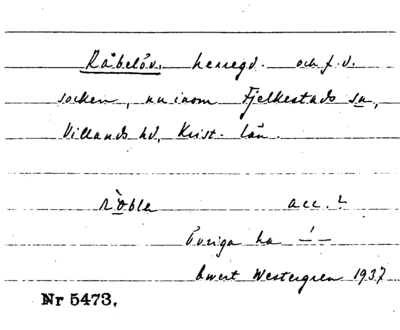 Råbelöv. herregd. och f.d.
socken, nu inom Fjelkestads sn,
Villands hd, Krist. län.
acc. 2
Övriga ha
Westergren 1937
Nr 5473.